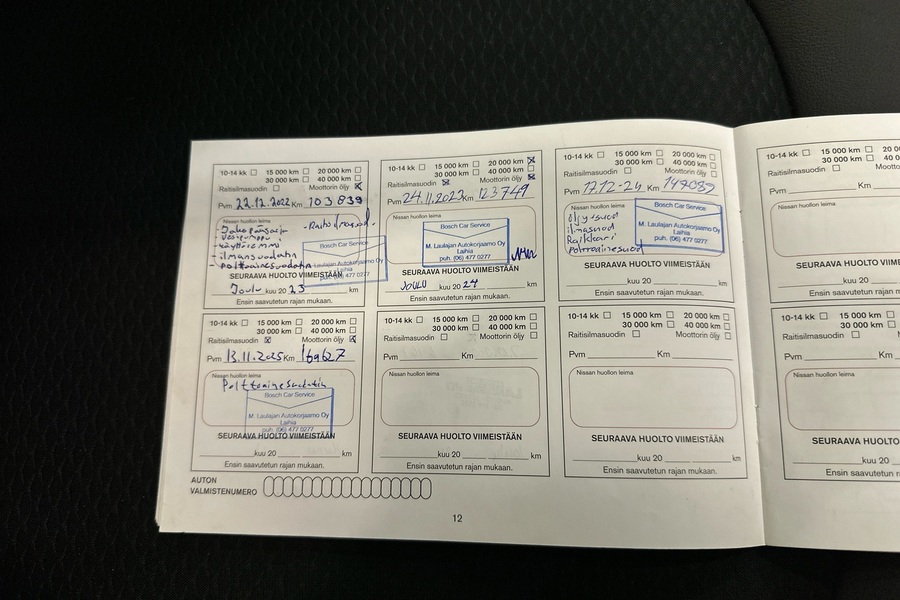 10-14 kk 15 000 km 20 000 km
30 000 km 40 000 km
Raitisilmasuodin Moottorin öljy
Pvm 22.12.2022 Km 103 839
Nissan huollon leima
- Jakopääsarja
- vesipumppu
- ilmansuodatin
- polttoainesuodatin
Bosch Car Service
M. Laulajan Autokorjaamo Oy
Laihia
puh. (06) 477 0277
SEURAAVA HUOLTO VIIMEISTÄÄN
Joulu kuu 20 23 km
Ensin saavutetun rajan mukaan.
10-14 kk 15 000 km 20 000 km
30 000 km 40 000 km
Raitisilmasuodin Moottorin öljy
Pvm 24.11.2023 Km 123749
Nissan huollon leima
Bosch Car Service
M. Laulajan Autokorjaamo Oy
Laihia
puh. (06) 477 0277
SEURAAVA HUOLTO VIIMEISTÄÄN
JOULU kuu 20 24 km
Ensin saavutetun rajan mukaan.
10-14 kk 15 000 km 20 000 km
30 000 km 40 000 km
Raitisilmasuodin Moottorin öljy
Pvm 17.12-24 Km
Nissan huollon leima
öljysuod
ilmasuod
Raikkari
Polttoainesuod
Bosch Car Service
M. Laulajan Autokorjaamo Oy
Laihia
puh. (06) 477 0277
SEURAAVA HUOLTO VIIMEISTÄÄN
kuu 20 km
Ensin saavutetun rajan mukaan.
10-14 kk 15 000 km 20 0
30 000 km 40 0
Raitisilmasuodin Mootto
Pvm Km
Nissan huollon leima
SEURAAVA HUOLTO VIIMEI
kuu 20
Ensin saavutetun rajan m
10-14 kk 15 000 km 20 000 km
30 000 km 40 000 km
Raitisilmasuodin Moottorin öljy
Pvm 13.11.2025 Km 169627
Nissan huollon leima
Polttoainesuodatin
Bosch Car Service
M. Laulajan Autokorjaamo Oy
Laihia
puh. (06) 477 0277
SEURAAVA HUOLTO VIIMEISTÄÄN
kuu 20 km
Ensin saavutetun rajan mukaan.
10-14 kk 15 000 km 20 000 km
30 000 km 40 000 km
Raitisilmasuodin Moottorin öljy
Pvm Km
Nissan huollon leima
SEURAAVA HUOLTO VIIMEISTÄÄN
kuu 20 km
Ensin saavutetun rajan mukaan.
10-14 kk 15 000 km 20 000 km
30 000 km 40 000 km
Raitisilmasuodin Moottorin öljy
Pvm Km
Nissan huollon leima
SEURAAVA HUOLTO VIIMEISTÄÄN
kuu 20 km
Ensin saavutetun rajan mukaan.
10-14 kk 15 000 km 20 0
30 000 km 40 0
Raitisilmasuodin Moott
Pvm Km
Nissan huollon leima
SEURAAVA HUOLTO VIIME
kuu 20
Ensin saavutetun rajan
AUTON
VALMISTENUMERO
12